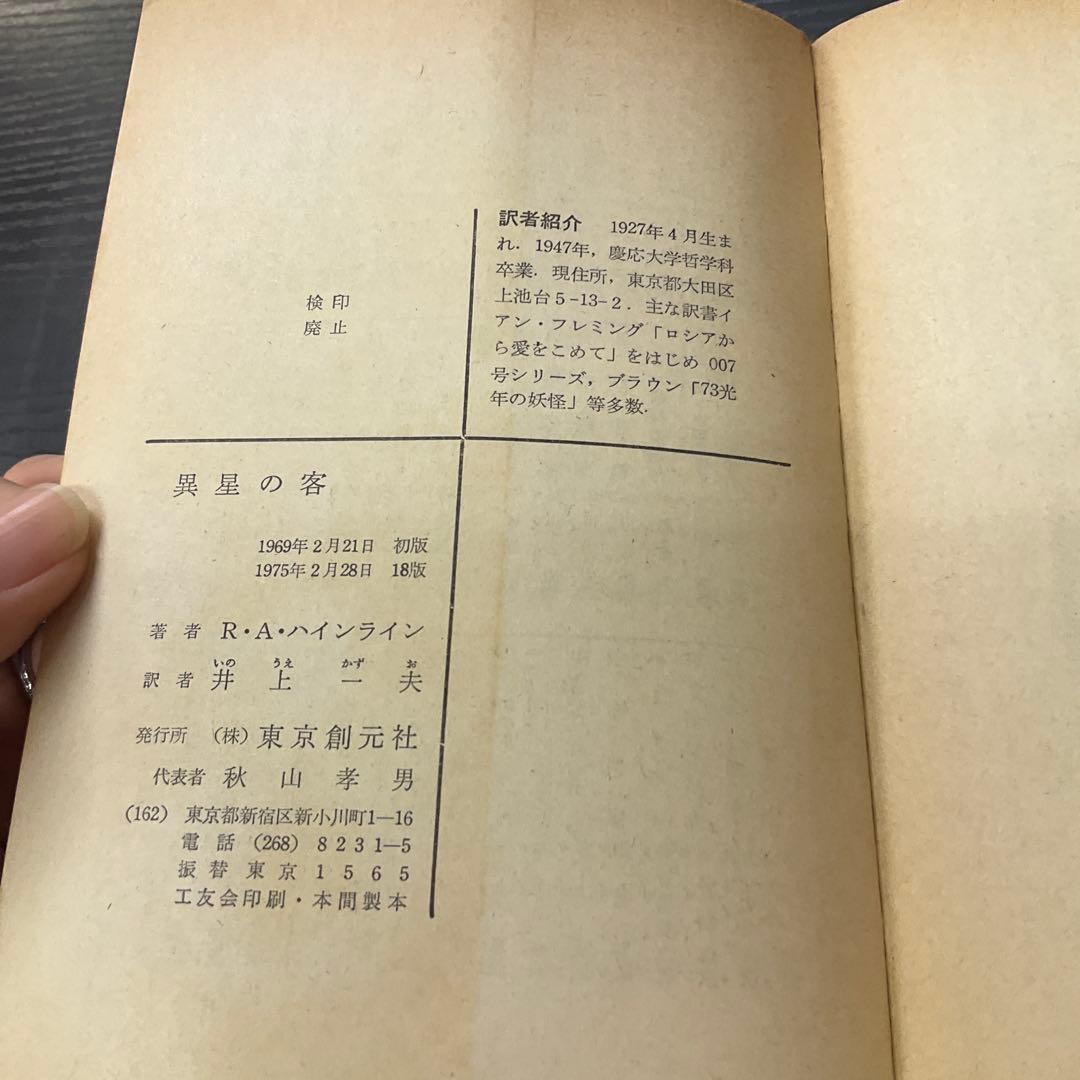 検印
廃止
訳者紹介 1927年4月生ま
れ. 1947年, 慶応大学哲学科
卒業. 現住所, 東京都大田区
上池台5-13-2. 主な訳書イ
アン・フレミング「ロシアか
ら愛をこめて」をはじめ 007
号シリーズ, ブラウン「73光
年の妖怪」等多数.
異星の客
1969年2月21日 初版
1975年2月28日 18版
著者 R・A・ハインライン
いの うえ かず お
訳者 井上一夫
発行所 (株) 東京創元社
代表者 秋山孝男
(162) 東京都新宿区新小川町1—16
電話 (268) 8231—5
振替東京1565
工友会印刷・本間製本